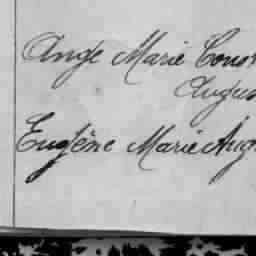 Ange Marie Cons
Augus
Eugène Marie Aug